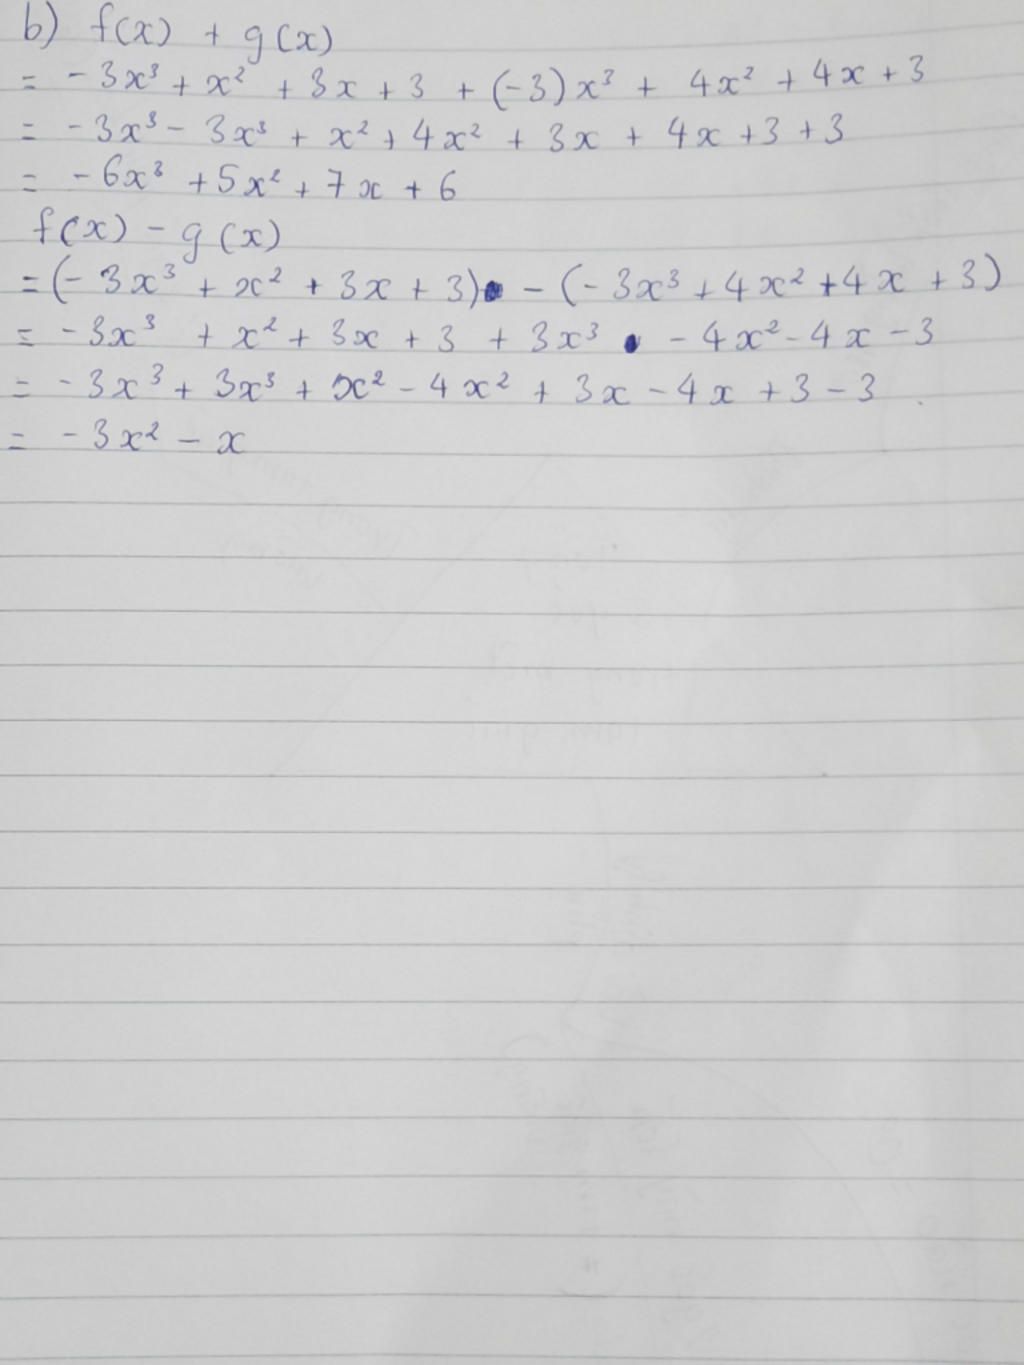 b) f(x) + g(x)
= -3x³ + x² + 3x + 3 + (-3)x³ + 4x² + 4x + 3
= -3x³ - 3x³ + x² + 4x² + 3x + 4x + 3 + 3
= -6x³ + 5x² + 7x + 6
f(x) - g(x)
= (-3x³ + x² + 3x + 3) - (-3x³ + 4x² + 4x + 3)
= -3x³ + x² + 3x + 3 + 3x³ - 4x² - 4x - 3
= -3x³ + 3x³ + x² - 4x² + 3x - 4x + 3 - 3
= -3x² - x